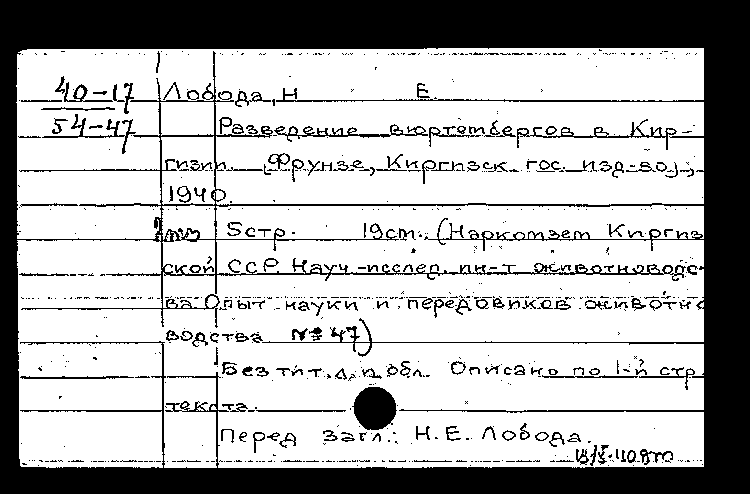 40-17 Лобода, Н Е.
54-47 Разведение вюртембергов в Кир-
гизии. [Фрунзе, Киргизск. гос. изд-во],
1940.
5стр. 19см. (Наркомзем Киргиз
ской ССР. Науч.-исслед. ин-т животноводс-
ва Опыт науки и передовиков животно
водства № 47)
Без тит. л. и обл. Описано по 1-й стр.
текста.
Перед загл.: Н.Е. Лобода.